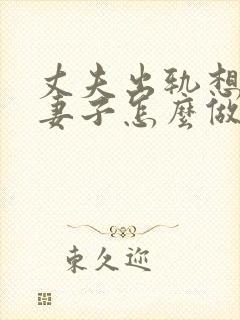 丈夫出轨想
妻子怎麼做
東久迩